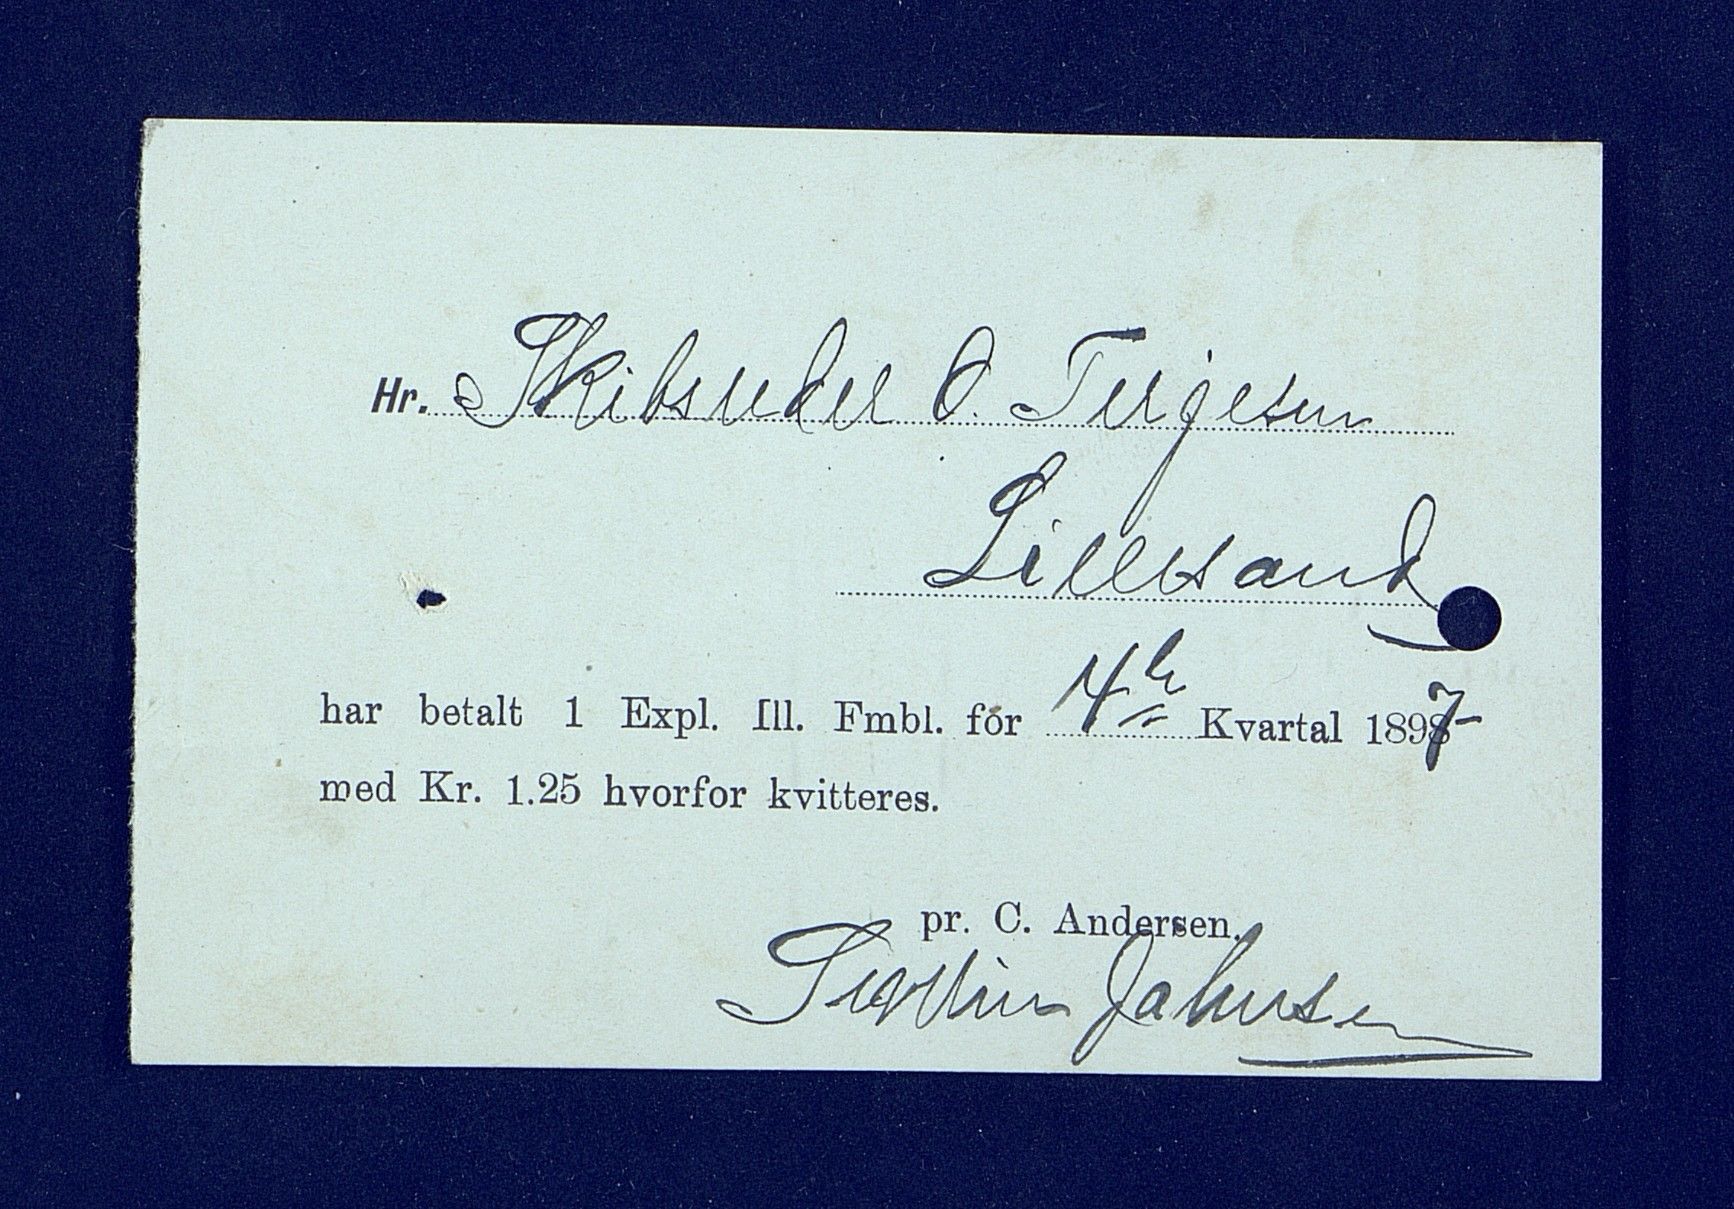 Hr. Skibsreder O. Terjesen
Lillesand
har betalt 1 Expl. Ill. Fmbl. for 4de Kvartal 1897
med Kr. 1.25 hvorfor kvitteres.
pr. C. Andersen.
Johnsen